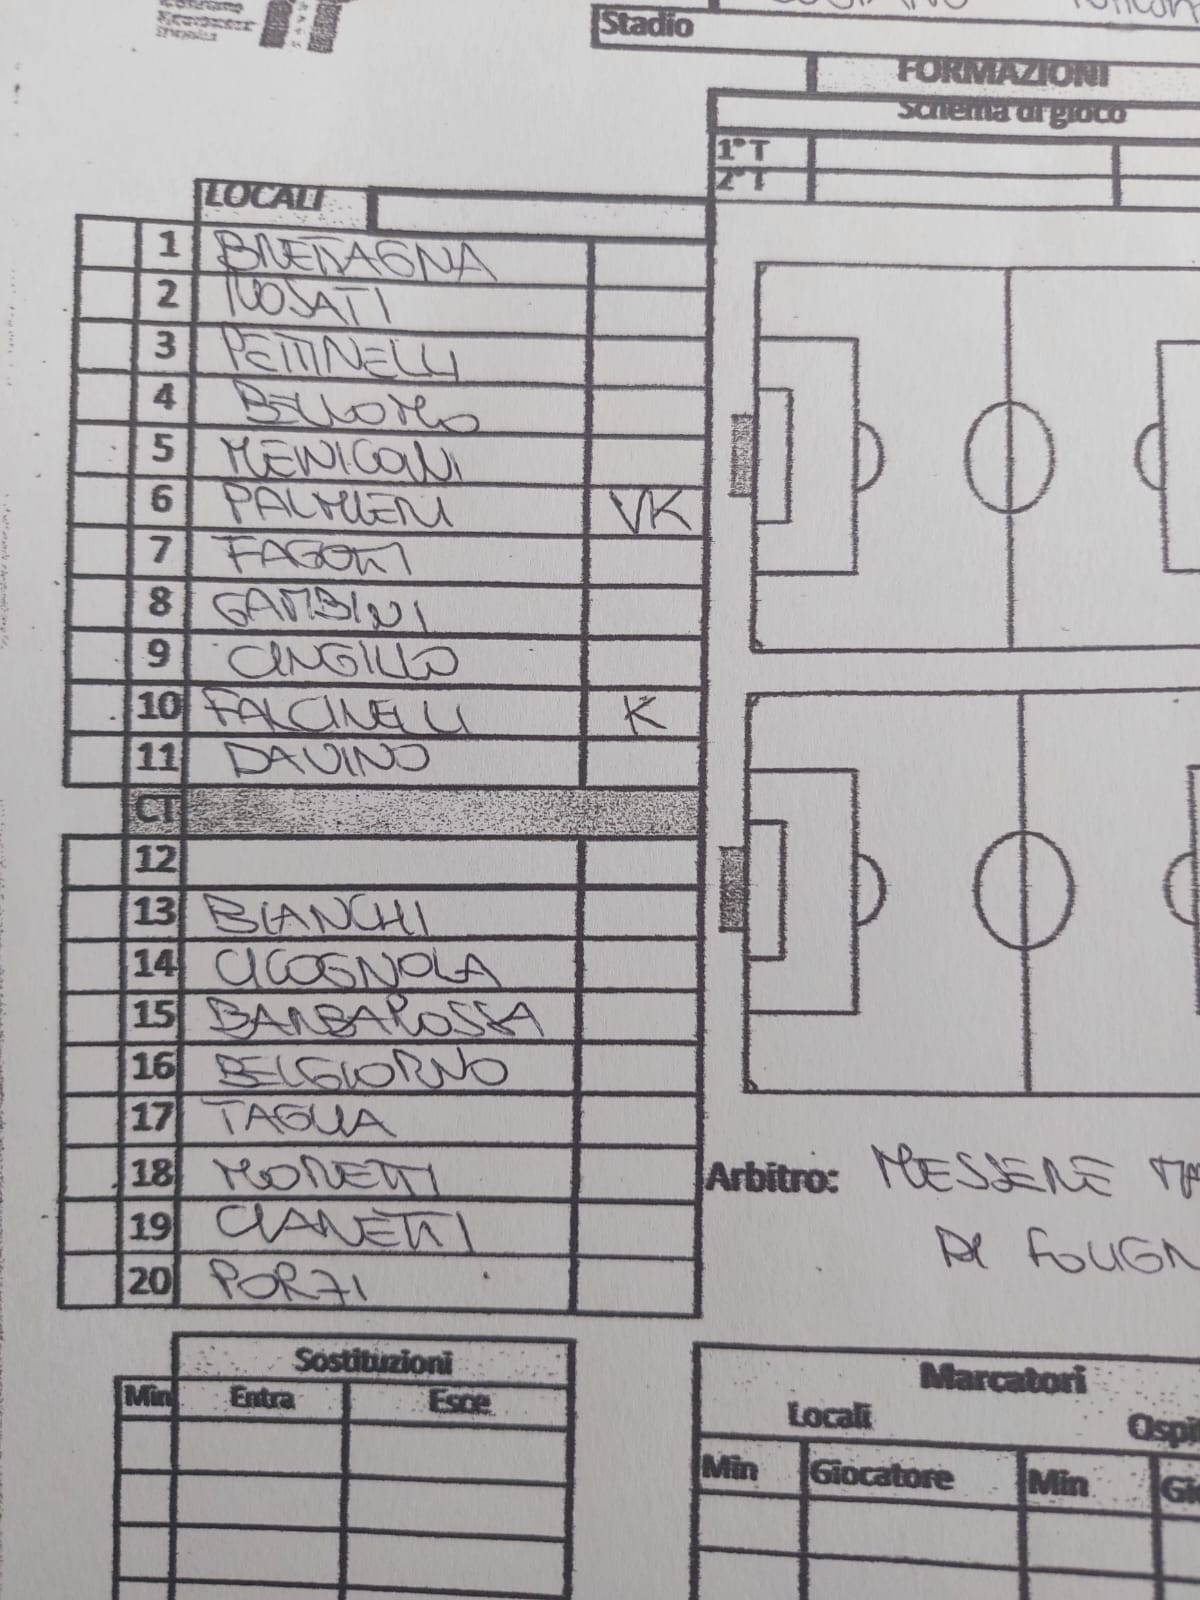 Stadio
FORMAZIONI
Schema di gioco
1°T
2°T
LOCALI
1 BRETAGNA
2 NOSATI
3 PETTINELLI
4 BELLOMO
5 MENICONI
6 PALMIERI VK
7 FAGOTTI
8 GAMBINI
9 CINGILLO
10 FALCINELLI K
11 DAVINO
CT
12
13 BIANCHI
14 CICOGNOLA
15 BARBAROSSA
16 BELGIORNO
17 TAGLIA
18 MORETTI
19 CIANETTI
20 PORZI
Arbitro: MESSERE
DI FOLIGN
Sostituzioni
Min Entra Esce
Marcatori
Locali Ospi
Min Giocatore Min Gi